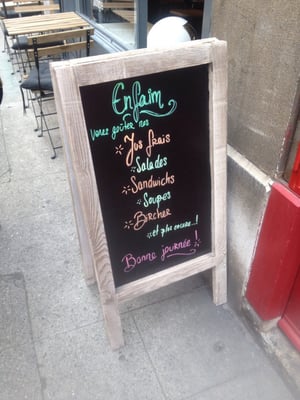 Enfaim
Venez goûter nos
Jus frais
Salades
Sandwichs
Soupes
Bircher
et plus encore...!
Bonne journée!